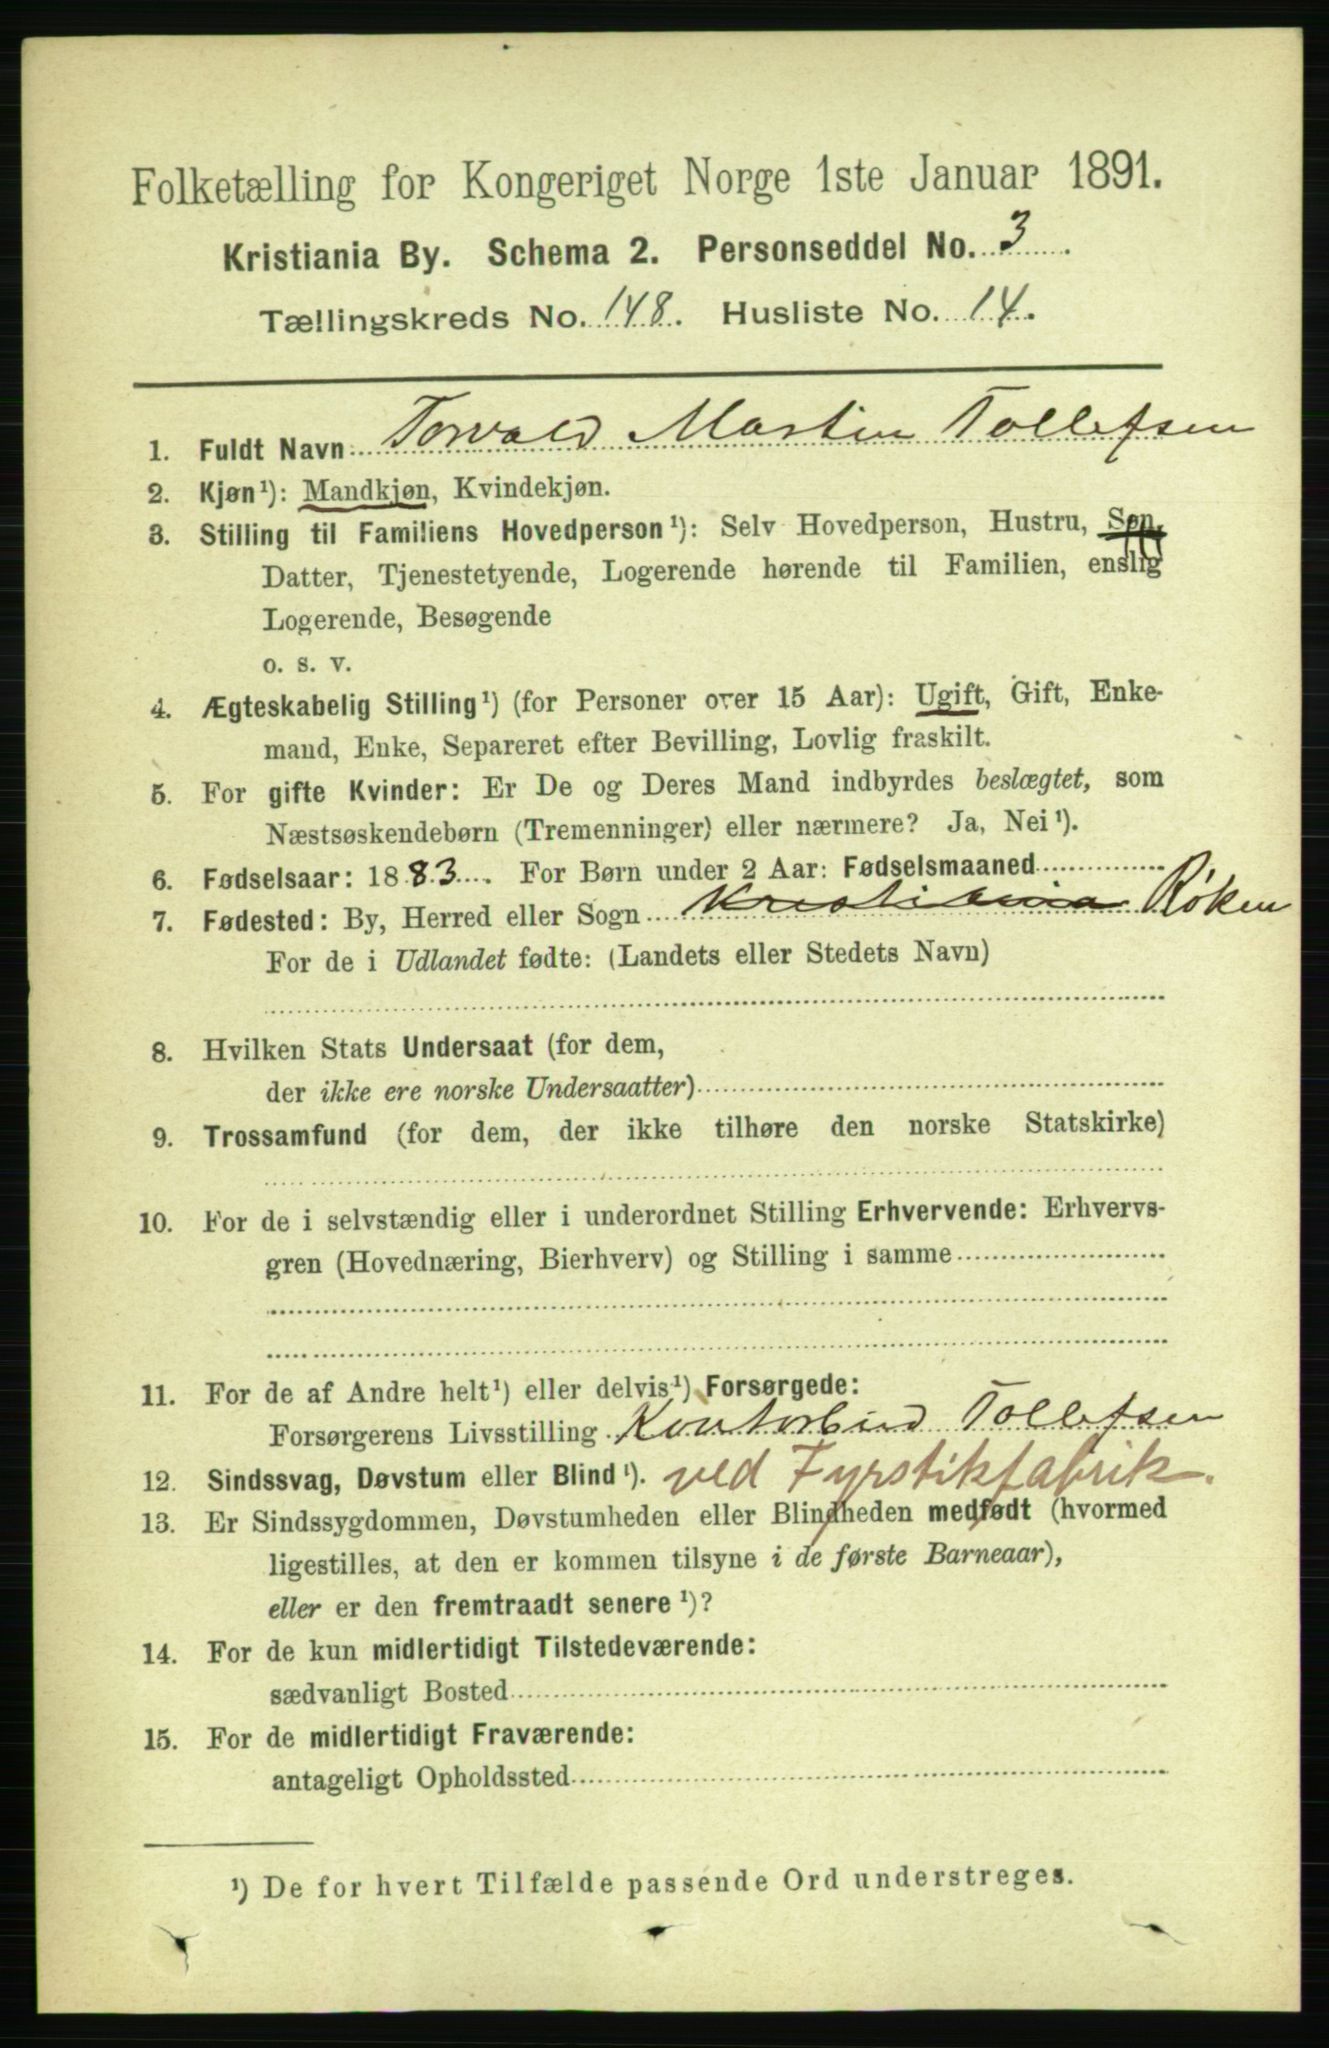 Folketælling for Kongeriget Norge 1ste Januar 1891.
Kristiania By. Schema 2. Personseddel No. 3.
Tællingskreds No. 148. Husliste No. 14.
1. Fuldt Navn Torvald Martin Tollefsen
2. Kjøn¹): Mandkjøn, Kvindekjøn.
3. Stilling til Familiens Hovedperson¹): Selv Hovedperson, Hustru, Søn,
Datter, Tjenestetyende, Logerende hørende til Familien, enslig
Logerende, Besøgende
o. s. v.
4. Ægteskabelig Stilling¹) (for Personer over 15 Aar): Ugift, Gift, Enke-
mand, Enke, Separeret efter Bevilling, Lovlig fraskilt.
5. For gifte Kvinder: Er De og Deres Mand indbyrdes beslægtet, som
Næstsøskendebørn (Tremenninger) eller nærmere? Ja, Nei¹).
6. Fødselsaar: 1883. For Børn under 2 Aar: Fødselsmaaned
7. Fødested: By, Herred eller Sogn Kristiania Røken
For de i Udlandet fødte: (Landets eller Stedets Navn)
8. Hvilken Stats Undersaat (for dem,
der ikke ere norske Undersaatter)
9. Trossamfund (for dem, der ikke tilhøre den norske Statskirke)
10. For de i selvstændig eller i underordnet Stilling Erhvervende: Erhvervs-
gren (Hovednæring, Bierhverv) og Stilling i samme
11. For de af Andre helt¹) eller delvis¹) Forsørgede:
Forsørgerens Livsstilling Kontorbud Tollefsen
12. Sindssvag, Døvstum eller Blind¹). ved Fyrstikfabrik.
13. Er Sindssygdommen, Døvstumheden eller Blindheden medfødt (hvormed
ligestilles, at den er kommen tilsyne i de første Barneaar),
eller er den fremtraadt senere¹)?
14. For de kun midlertidigt Tilstedeværende:
sædvanligt Bosted
15. For de midlertidigt Fraværende:
antageligt Opholdssted
¹) De for hvert Tilfælde passende Ord understreges.